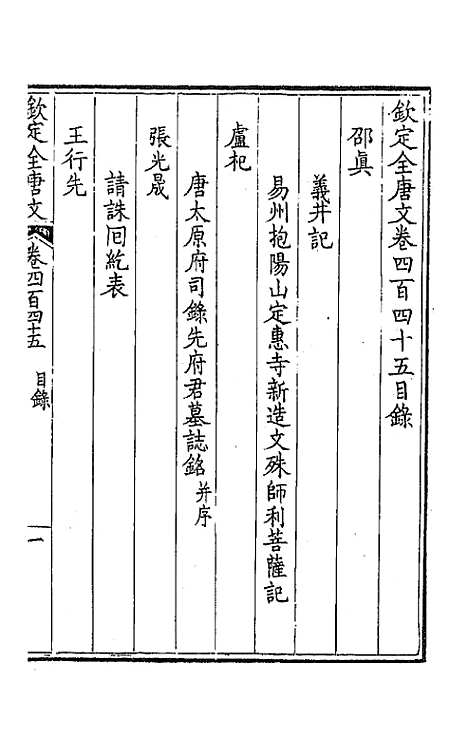 欽定全唐文卷四百四十五目錄
邵眞
義井記
易州抱陽山定惠寺新造文殊師利菩薩記
盧杞
唐太原府司錄先府君墓誌銘并序
張光晟
請誅回紇表
王行先
欽定全唐文 卷四百四十五 目錄 一